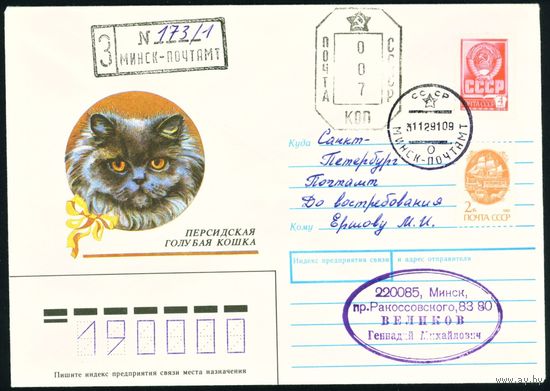 З N 173/1
МИНСК-ПОЧТАМТ
ПОЧТА СССР
007
КОП
СССР
4
СССР
31129109
МИНСК-ПОЧТАМТ
О
2к
ПОЧТА СССР
Куда Санкт-
Петербург
Почтамт
До востребования
Кому Ершову М.И.
ПЕРСИДСКАЯ
ГОЛУБАЯ КОШКА
Индекс предприятия связи и адрес отправителя
220085, Минск,
пр.Ракоссовского,83 80
ВЕЛИКОВ
Геннадий Михайлович
190000
Пишите индекс предприятия связи места назначения
www.ay.by